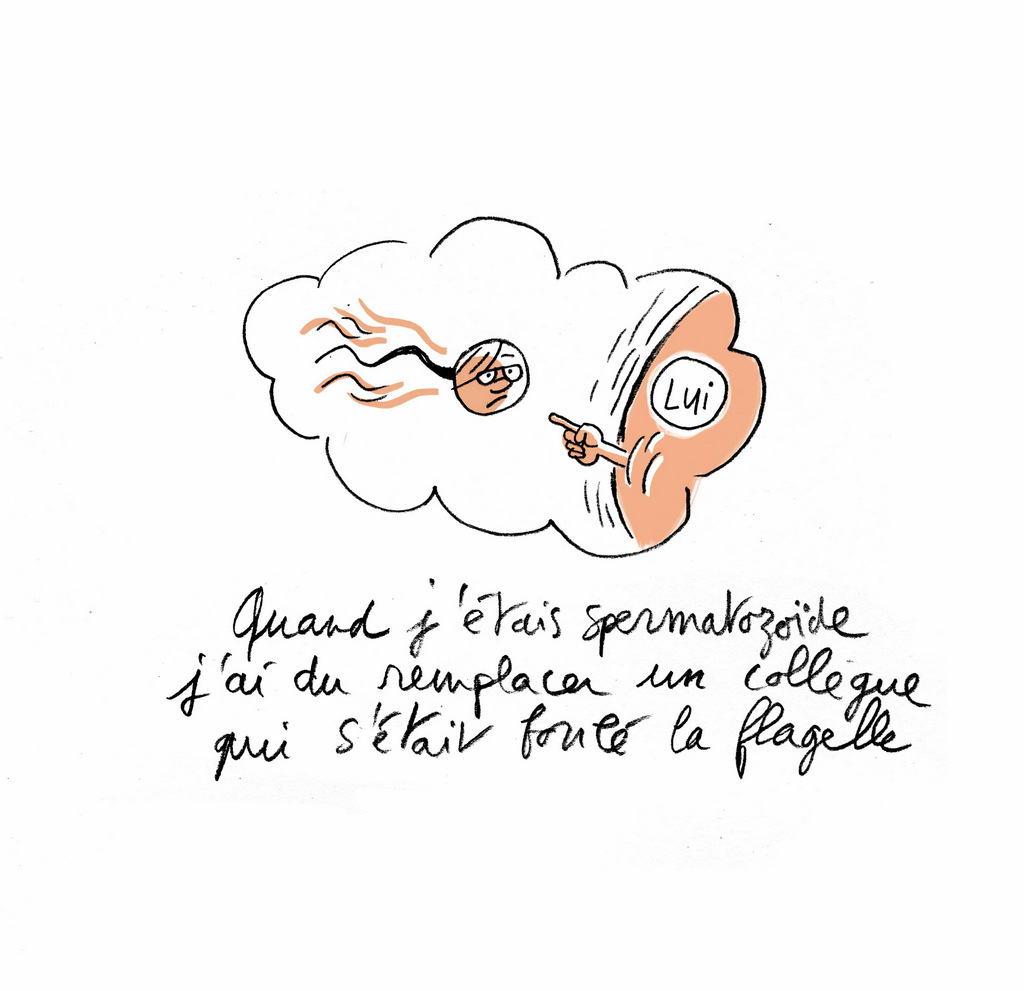 Lui
Quand j'étais spermatozoïde
j'ai du remplacer un collègue
qui s'était foulé la flagelle